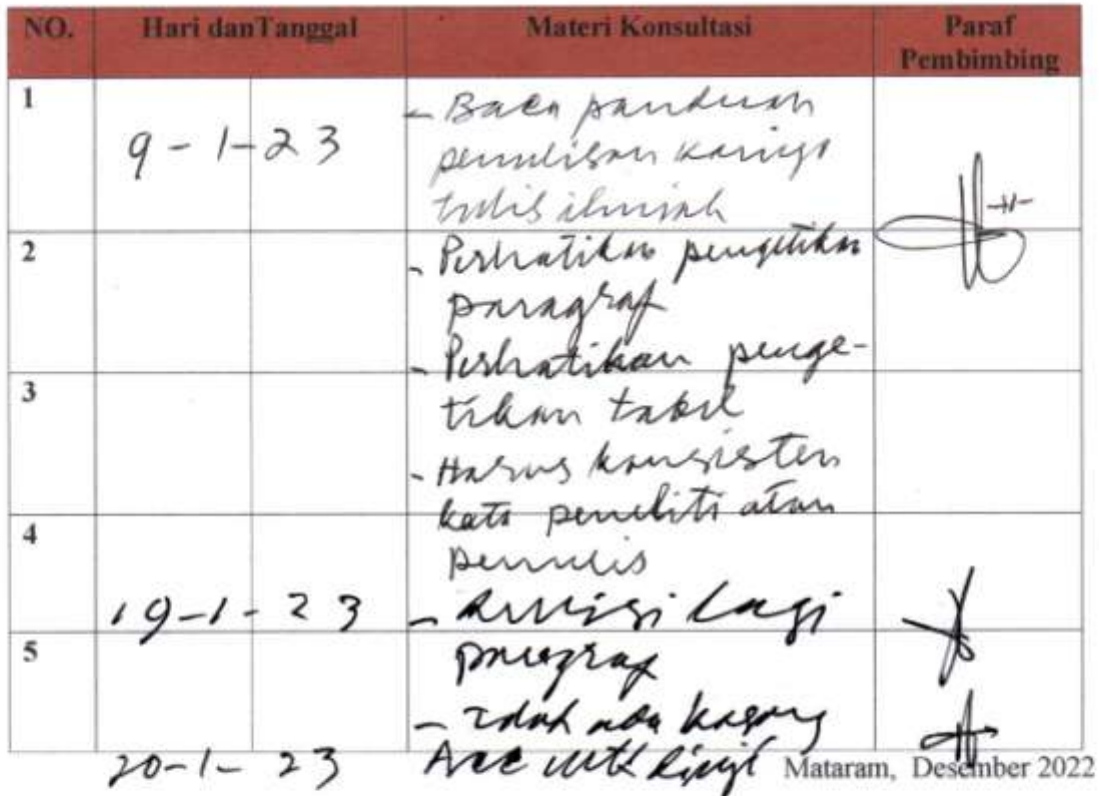 NO. Hari danTanggal Materi Konsultasi Paraf
Pembimbing
1 9-1-23 - Baca panduan
penulisan karya
tulis ilmiah
2 - Perhatikan pengetikan
paragraf
- Perhatikan penge-
3 tikan tabel
- Harus konsisten
kata peneliti atau
4 penulis
19-1-23 - Revisi lagi
5 paragraf
- Tidak ada kosong
20-1-23 Acc utk
Mataram, Desember 2022